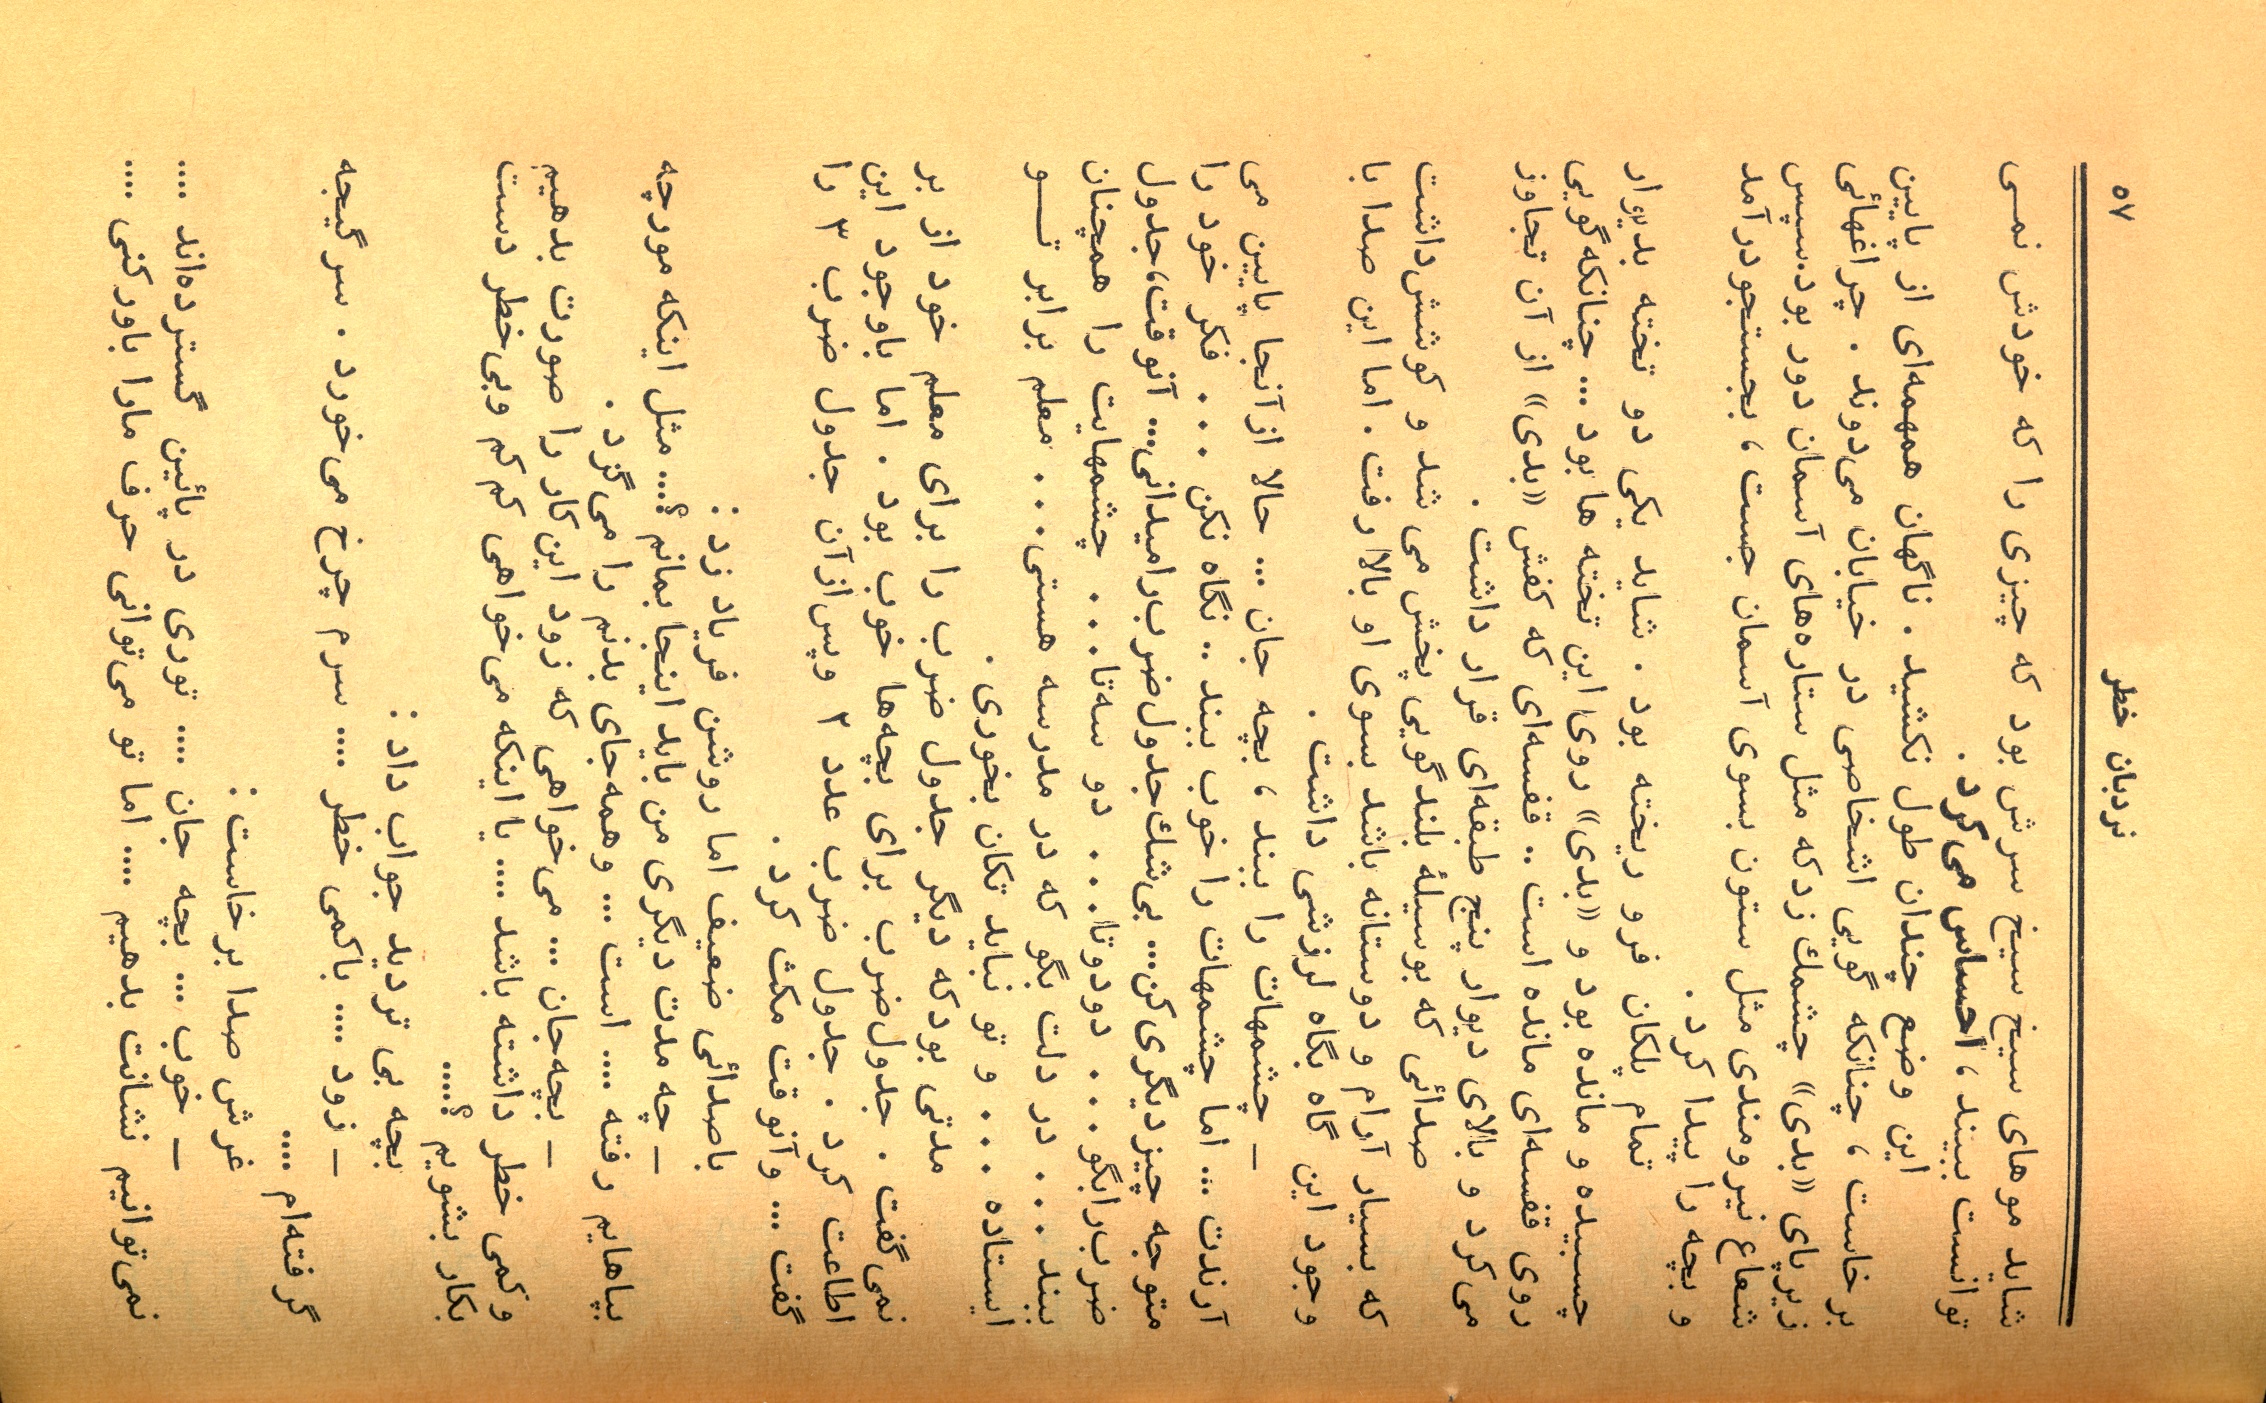 نردبان خطر
۵۷
شاید موهای سیخ سیخ سرش بود که چیزی را که خودش نمی
توانست ببیند، احساس می‌کرد.
این وضع چندان طول نکشید. ناگهان همهمه‌ای از پایین
برخاست، چنانکه گویی اشخاصی در خیابان می‌دوند. چراغهائی
زیرپای «بدی» چشمك زد که مثل ستاره‌های آسمان دور بود. سپس
شعاع نیرومندی مثل ستون بسوی آسمان جست، بجستجو درآمد
و بچه را پیدا کرد.
تمام پلکان فرو ریخته بود. شاید یکی دو تخته بدیوار
چسبیده و مانده بود و «بدی» روی این تخته ها بود... چنانکه گویی
روی قفسه‌ای مانده است.. قفسه‌ای که کفش «بدی» از آن تجاوز
می‌کرد و بالای دیوار پنج طبقه‌ای قرار داشت.
صدائی که بوسیلهٔ بلندگویی پخش می شد و کوشش داشت
که بسیار آرام و دوستانه باشد بسوی او بالا رفت. اما این صدا با
وجود این گاه بگاه لرزشی داشت.
– چشمهات را ببند، بچه جان... حالا از آنجا پایین می
آرندت... اما چشمهات را خوب ببند.. نگاه نکن... فکر خود را
متوجه چیز دیگری کن... بی‌شك جدول ضرب را میدانی... آنوقت، جدول
ضرب را بگو... دودوتا... دو سه‌تا... چشمهایت را همچنان
ببند... در دلت بگو که در مدرسه هستی... معلم برابر تو
ایستاده... و تو نباید تکان بخوری.
مدتی بود که دیگر جدول ضرب را برای معلم خود از بر
نمی‌گفت. جدول ضرب برای بچه‌ها خوب بود. اما باوجود این
اطاعت کرد. جدول ضرب عدد ۲ وپس از آن جدول ضرب ۳ را
گفت... وآنوقت مکث کرد.
باصدائی ضعیف اما روشن فریاد زد:
– چه مدت دیگری من باید اینجا بمانم؟... مثل اینکه مورچه
بپاهایم رفته.... است... وهمه‌جای بدنم را می‌گزد.
– بچه‌جان... می‌خواهی که زود این کار را صورت بدهیم
و کمی خطر داشته باشد.... یا اینکه می‌خواهی کم کم وبی‌خطر دست
بکار بشویم؟....
بچه بی تردید جواب داد:
– زود.... باکمی خطر.... سرم چرخ می‌خورد. سرگیجه
گرفته‌ام....
غرش صدا برخاست:
– خوب... بچه جان.... توری در پائین گسترده‌اند....
نمی‌توانیم نشانت بدهیم.... اما تو می‌توانی حرف مارا باور کنی....